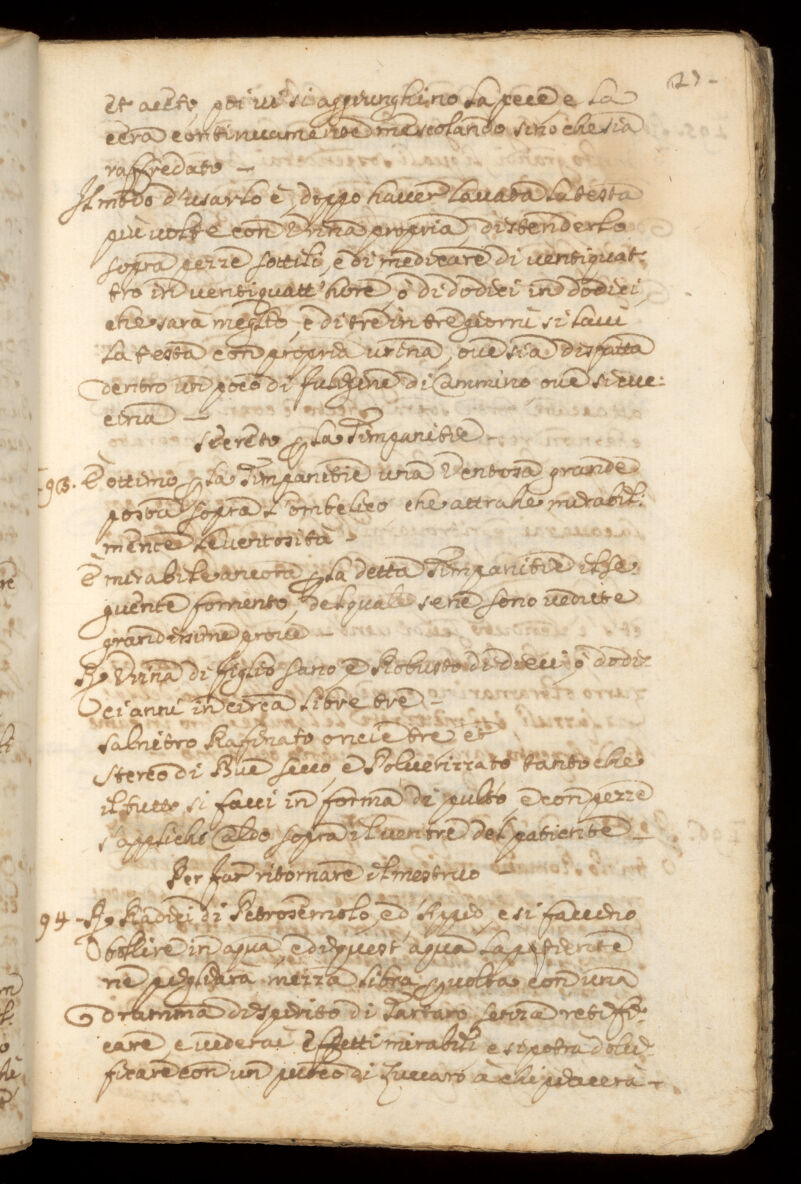 27
et aceto, poi vi si aggiunghino la pece e la
cera continuamente mescolando sino che sia
raffredato –
Il modo d'usarlo è, doppo haver lavata la testa
più volte con Urina propria, distenderlo
sopra pezze sottili, e di medicare di ventiquat-
tro in ventiquatt' hore, ò di dodici in dodici,
che sarà meglio, e di tre in tre giorni si lavi
la testa con propria urina, ove sia disfatta
dentro un poco di fuligine di Cammino, ove si
–
Secreto p la Timpanitie
93. È ottimo p la Timpanitie una Ventosa grande
posta sopra l'ombelico che attrahe mirabil:
mente le ventosità –
È mirabile ancora p la detta Timpanitie il se:
guente fomento, del quale se ne sono vedute
grandissime prove –
R Urina di figlio sano, e Robusto di dieci, ò dodi:
ci anni in circa libre tre –
Salnitro Rafinato oncie tre et
Stereo di Bue secco, e Polverizzato tanto che
il tutto si facci in forma di pulto e con pezze
s'applichi Caldo sopra il ventre del patiente –
Per far ritornare il mestruo
94 – R Radici di Petrosemolo, ed Appio, e si faccino
bollire in aqua, e di quest' aqua la patiente
ne pigliarà mezza libra p volta con una
dramma di spirito di Tartaro senza retifi:
care, e vederai Effetti mirabili e si potrà dolci:
ficare con un puoco di Zuccaro à chi piacerà –